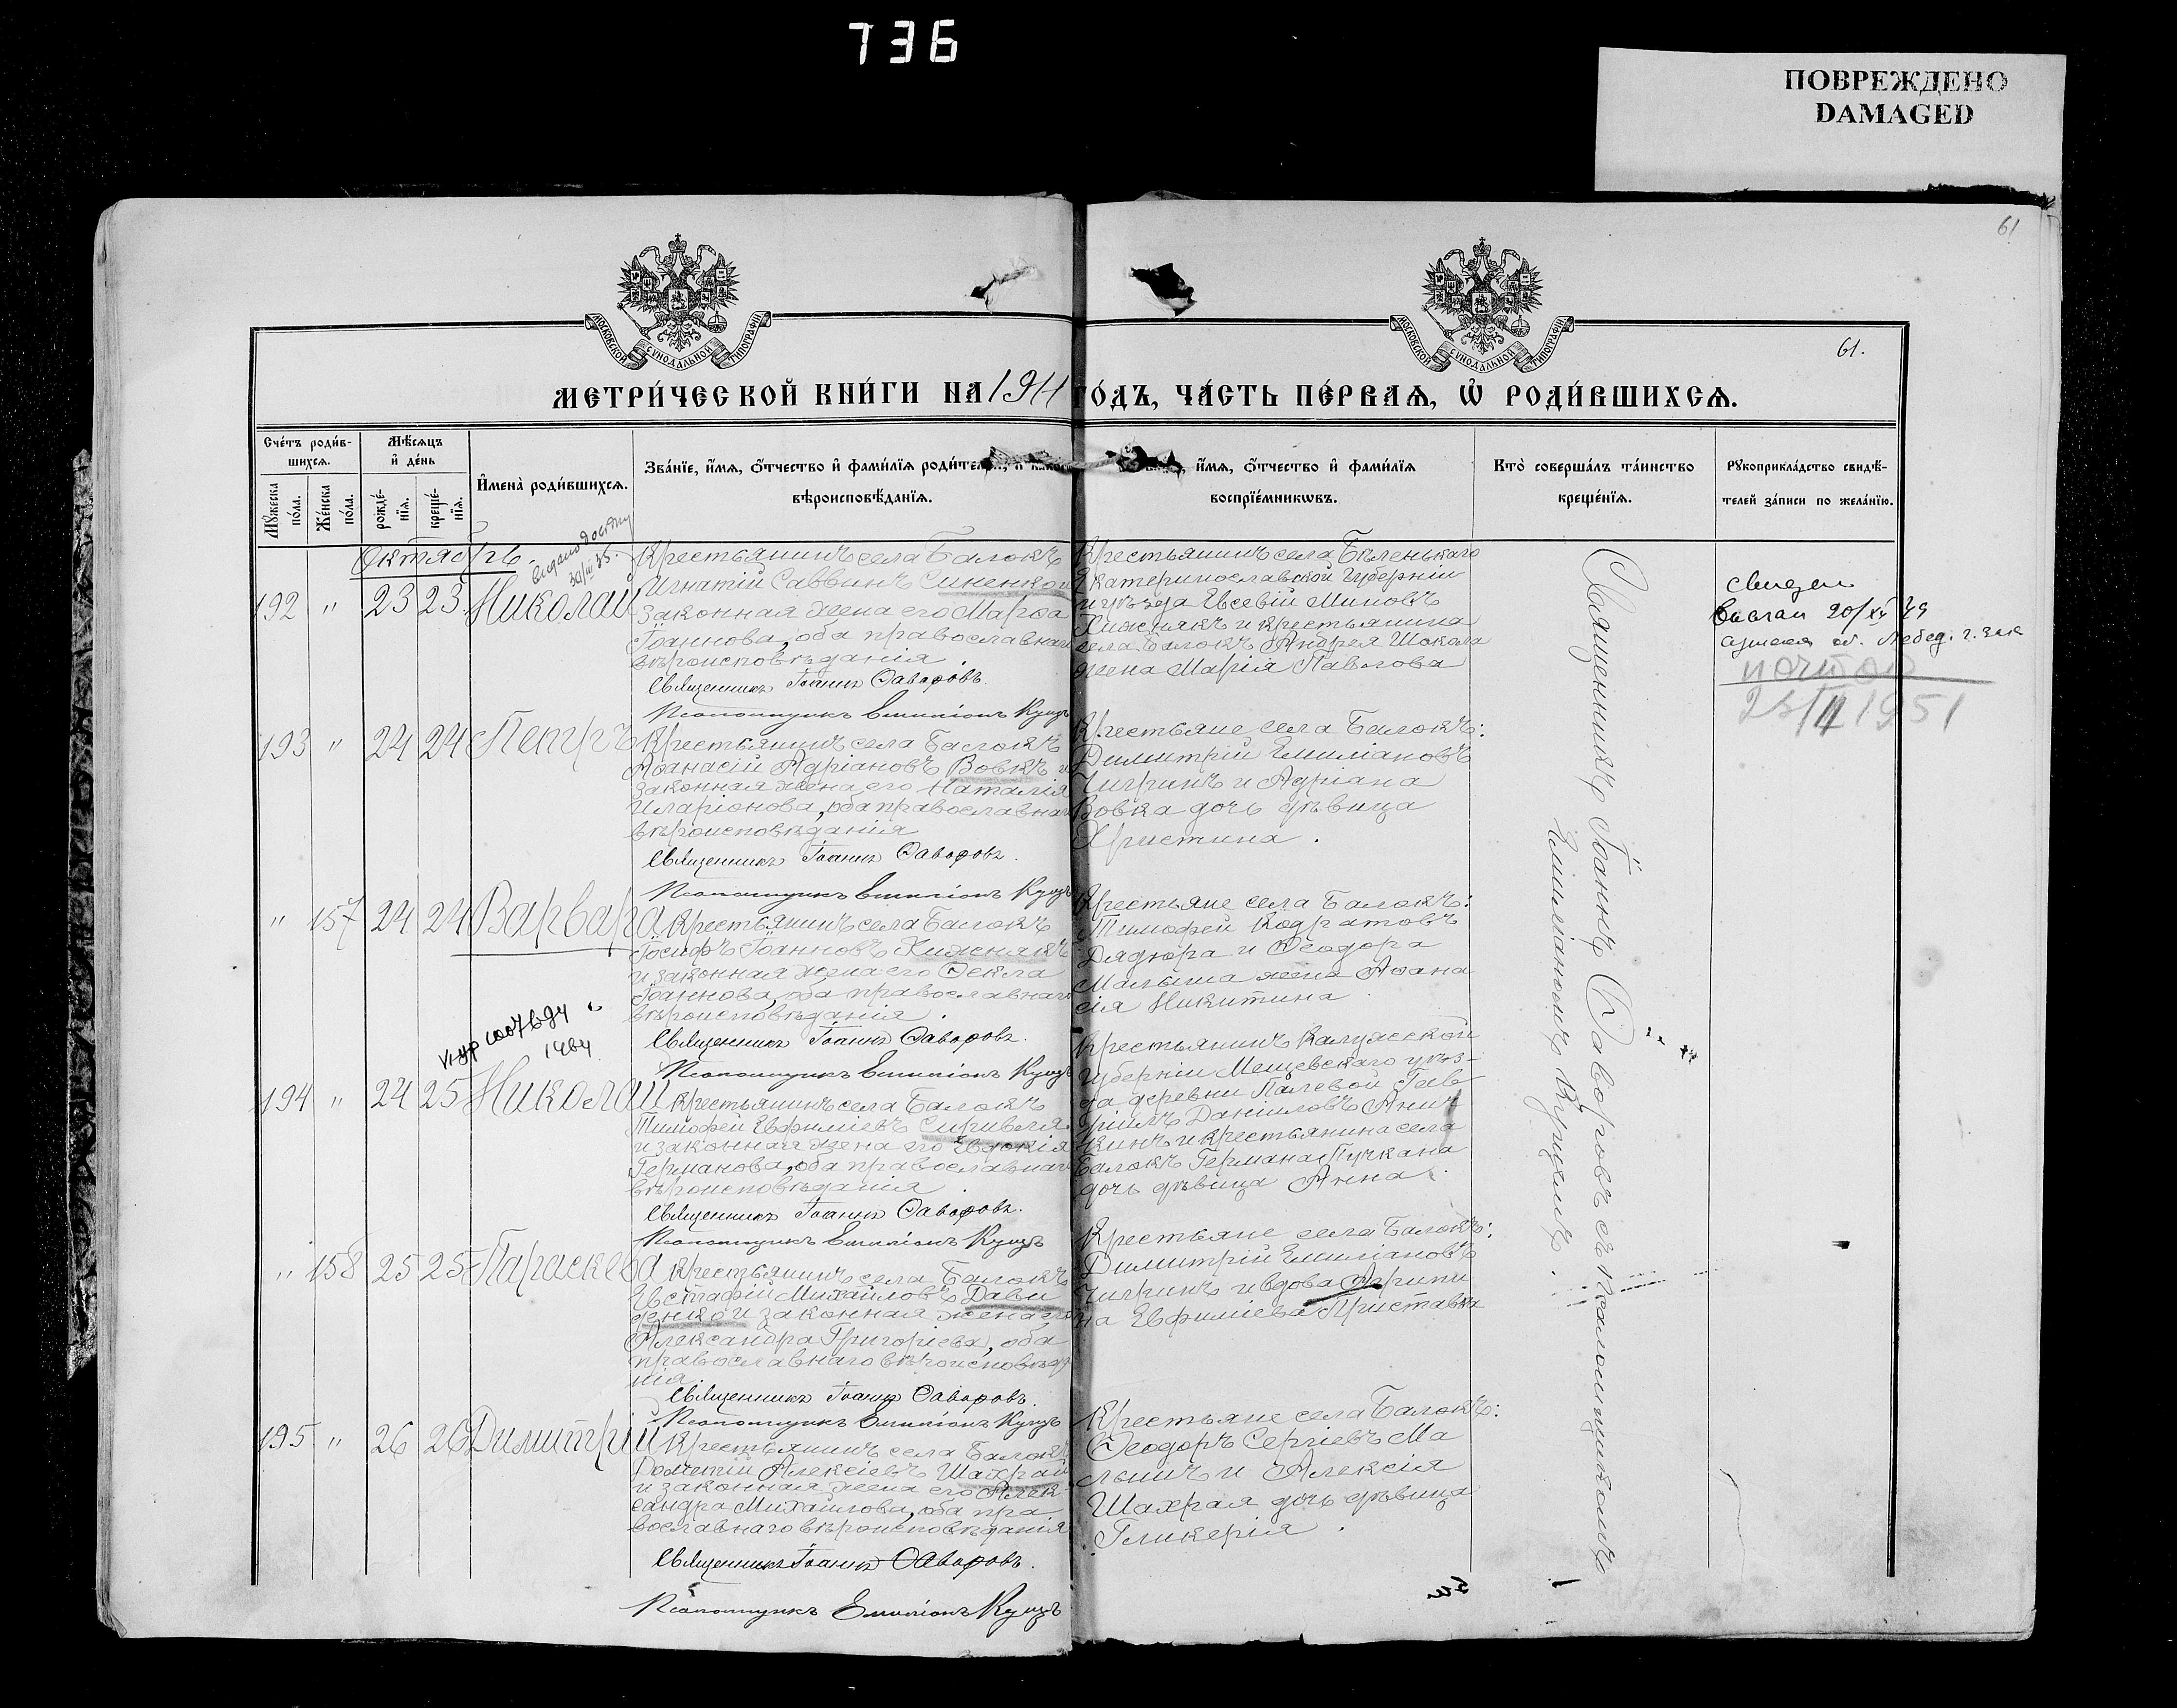 736
ПОВРЕЖДЕНО
DAMAGED
61
61.
МОСКОВСКОЙ СѴНОДАЛЬНОЙ ТИПОГРАФІИ
МОСКОВСКОЙ СѴНОДАЛЬНОЙ ТИПОГРАФІИ
МЕТРИ́ЧЕСКОЙ КНИ́ГИ НА 1911 ГО́ДЪ, ЧА́СТЬ ПЕ́РВАѦ, Ѡ҆ РОДИ́ВШИХСѦ.
Сче́тъ роди́в-
шихсѧ.
Мꙋ́жеска по́ла.
Же́нска по́ла.
Мѣ́сѧцъ
и҆ де́нь
рожде́-
нїѧ.
креще́-
нїѧ.
И҆мена̀ роди́вшихсѧ.
Зва́нїе, и҆́мѧ, ѻ҆́тчество и҆ фами́лїѧ роди́телей, и҆
вѣроисповѣ́данїѧ.
и҆́мѧ, ѻ҆́тчество и҆ фами́лїѧ
воспрїе́мникѡвъ.
Кто̀ соверша́лъ та́инство
креще́нїѧ.
Рꙋкоприкла́дство свидѣ́-
телей за́писи по жела́нїю.
Октябрь.
30/III 35.
192 " 23 23 Николай
Крестьянинъ села Балокъ
Игнатій Саввинъ Синенко и
законная жена его Марѳа
Іоаннова, оба православнаго
вѣроисповѣданія.
Священникъ Іоаннъ Ѳаворовъ.
Псаломщикъ Емиліонъ Куцъ
Крестьянинъ села Бѣленькаго
Екатеринославской Губерніи
и уѣзда Евсевій Миновъ
Хижнякъ и крестьянина
села Балокъ Андрея Шокала
жена Марія Павлова
Священникъ Іоаннъ Ѳаворовъ съ псаломщикомъ
Емиліаномъ Куцемъ.
выслан 20/XI 49
почтой
1951
193 " 24 24 Петръ
Крестьянинъ села Балокъ
Аѳанасій Адріановъ Вовкъ и
законная жена его Наталія
Иларіонова, оба православнаго
вѣроисповѣданія
Священникъ Іоаннъ Ѳаворовъ.
Псаломщикъ Емиліонъ Куцъ
Крестьяне села Балокъ:
Димитрій Емиліановъ
Чигринъ и Адріана
Вовка дочь дѣвица
Христина.
" 157 24 24 Варвара
Крестьянинъ села Балокъ
Іосифъ Іоанновъ Хижнякъ
и законная жена его Ѳекла
Іоаннова, оба православнаго
вѣроисповѣданія.
Священникъ Іоаннъ Ѳаворовъ.
Псаломщикъ Емиліонъ Куцъ
Крестьяне села Балокъ:
Тимофей Кодратовъ
Дядюра и Ѳеодора
Малыша жена Аѳана
сія Никитина
194 " 24 25 Николай
Крестьянинъ села Балокъ
Тимофей Евфиміевъ Сиривля
и законная жена его Евдокія
Германова, оба православнаго
вѣроисповѣданія.
Священникъ Іоаннъ Ѳаворовъ.
Псаломщикъ Емиліонъ Куцъ
Крестьянинъ Калужской
Губерніи Мещевскаго уѣз-
да деревни Палевой Гав
ріилъ Даніиловъ Анич
кинъ и крестьянина села
Балокъ Германа Пучкана
дочь дѣвица Анна.
" 158 25 25 Параскева
Крестьянинъ села Балокъ
Евстафій Михаиловъ Дави
денко и законная жена его
Александра Григорьева, оба
православнаго вѣроисповѣда
нія.
Священникъ Іоаннъ Ѳаворовъ.
Псаломщикъ Емиліонъ Куцъ
Крестьяне села Балокъ:
Димитрій Емиліановъ
Чигринъ и вдова Агрипи
на Евфиміева Приставка
195 " 26 26 Димитрій
Крестьянинъ села Балокъ
Дометій Алексіевъ Шахрай
и законная жена его Алек
сандра Михаилова, оба пра
вославнаго вѣроисповѣданія
Священникъ Іоаннъ Ѳаворовъ.
Псаломщикъ Емиліонъ Куцъ
Крестьяне села Балокъ:
Ѳеодоръ Сергіевъ Ма
лышъ и Алексія
Шахрая дочь дѣвица
Гликерія.